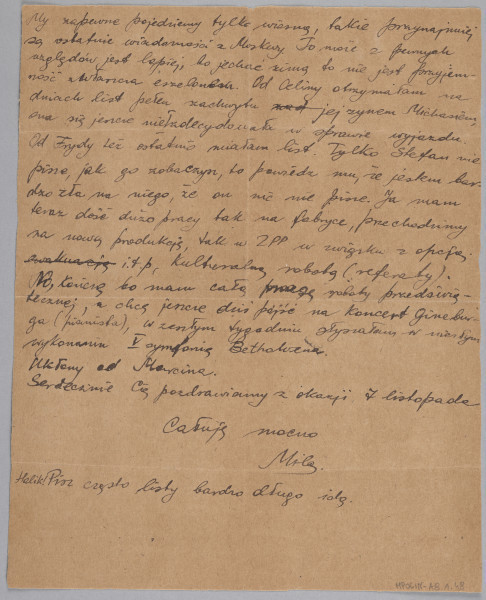 My zapewne pojedziemy tylko wiosną, takie przynajmniej
są ostatnie wiadomości z Moskwy. To może z pewnych
względów jest lepiej, bo jechać zimą to nie jest przyjem-
ność otwarcia eszelonów. Od Celiny otrzymałam na
dniach list pełen zachwytu nad jej synem Michasiem,
ona się jeszcze nie zadecydowała w sprawie wyjazdu.
Od Frydy też ostatnio miałam list. Tylko Stefan nie
pisze, jak go zobaczysz, to powiedz mu, że jestem bar-
dzo zła na niego, że on nic nie pisze. Ja mam
teraz dość dużo pracy tak na fabryce, przechodzimy
na nową produkcję, tak w ZPP w związku z opcją
ewakuacją i.t.p, kulturalną robotą (referaty).
No, kończę bo mam całą roboty przedświą-
tecznej, a chcę jeszcze dziś pójść na koncert Ginzbur-
ga (pianista), w zeszłym tygodniu słyszałam w
wykonaniu V symfonię Bethovena.
Ukłony od Marcina.
Serdecznie Cię pozdrawiamy z okazji 7 listopada
Całuję mocno
Mila
Halik! Pisz często listy bardzo długo idą.